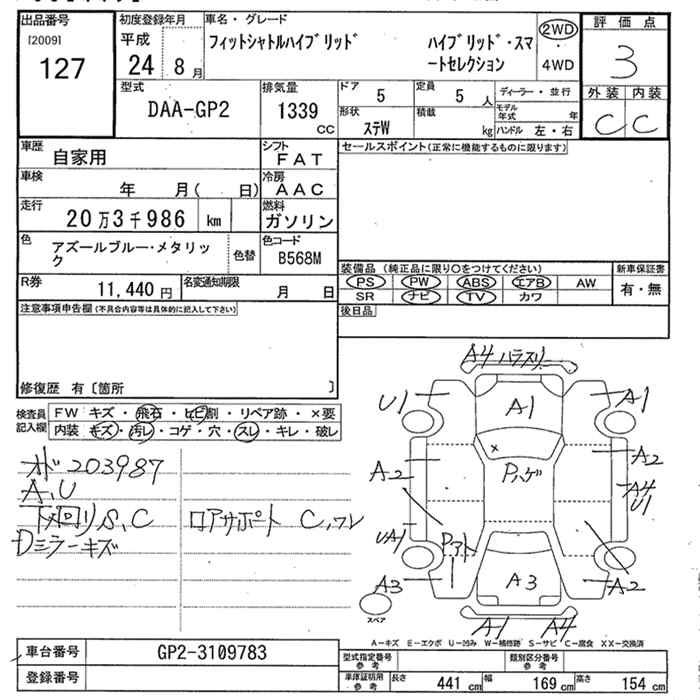 出品番号
[2009]
127
初度登録年月
平成
24 8月
車名・グレード
フィットシャトルハイブリッド
ハイブリッド・スマートセレクション
2WD
4WD
評価点
3
外装 内装
C C
型式
DAA-GP2
排気量
1339
CC
ドア 5
定員 5 人
形状 ステW
積載 kg
ディーラー・並行
モデル年式 年
ハンドル 左・右
車歴 自家用
シフト FAT
セールスポイント(正常に機能するものに限ります)
車検 年 月( 日)
冷房 AAC
走行 20万3千986 km
燃料 ガソリン
色 アズールブルー・メタリック
色替
色コード B568M
R券 11,440円
名変通知期限 月 日
装備品(純正品に限り○をつけてください)
PS PW ABS エアB AW
SR ナビ TV カワ
新車保証書
有・無
後日品
注意事項申告欄(不具合内容等は具体的に記入して下さい)
修復歴 有〔箇所 〕
検査員記入欄
FW キズ・飛石・ヒビ割・リペア跡・×要
内装 キズ・汚レ・コゲ・穴・スレ・キレ・破レ
メーター 203987
A、U
下回り S、C
Dミラーキズ
ロアサポート C、ワレ
A4 ハラスリ
U1
A1
A1
A2
Pハゲ
A2
A4
U1
UA1
Pアト
A3
A3
A2
A1
A4
スペア
A−キズ E−エクボ U−凹み W−補修跡 S−サビ C−腐食 XX−交換済
車台番号 GP2-3109783
登録番号
型式指定番号 参考
類別区分番号 参考
車庫証明用 参考
長さ 441 cm
幅 169 cm
高さ 154 cm